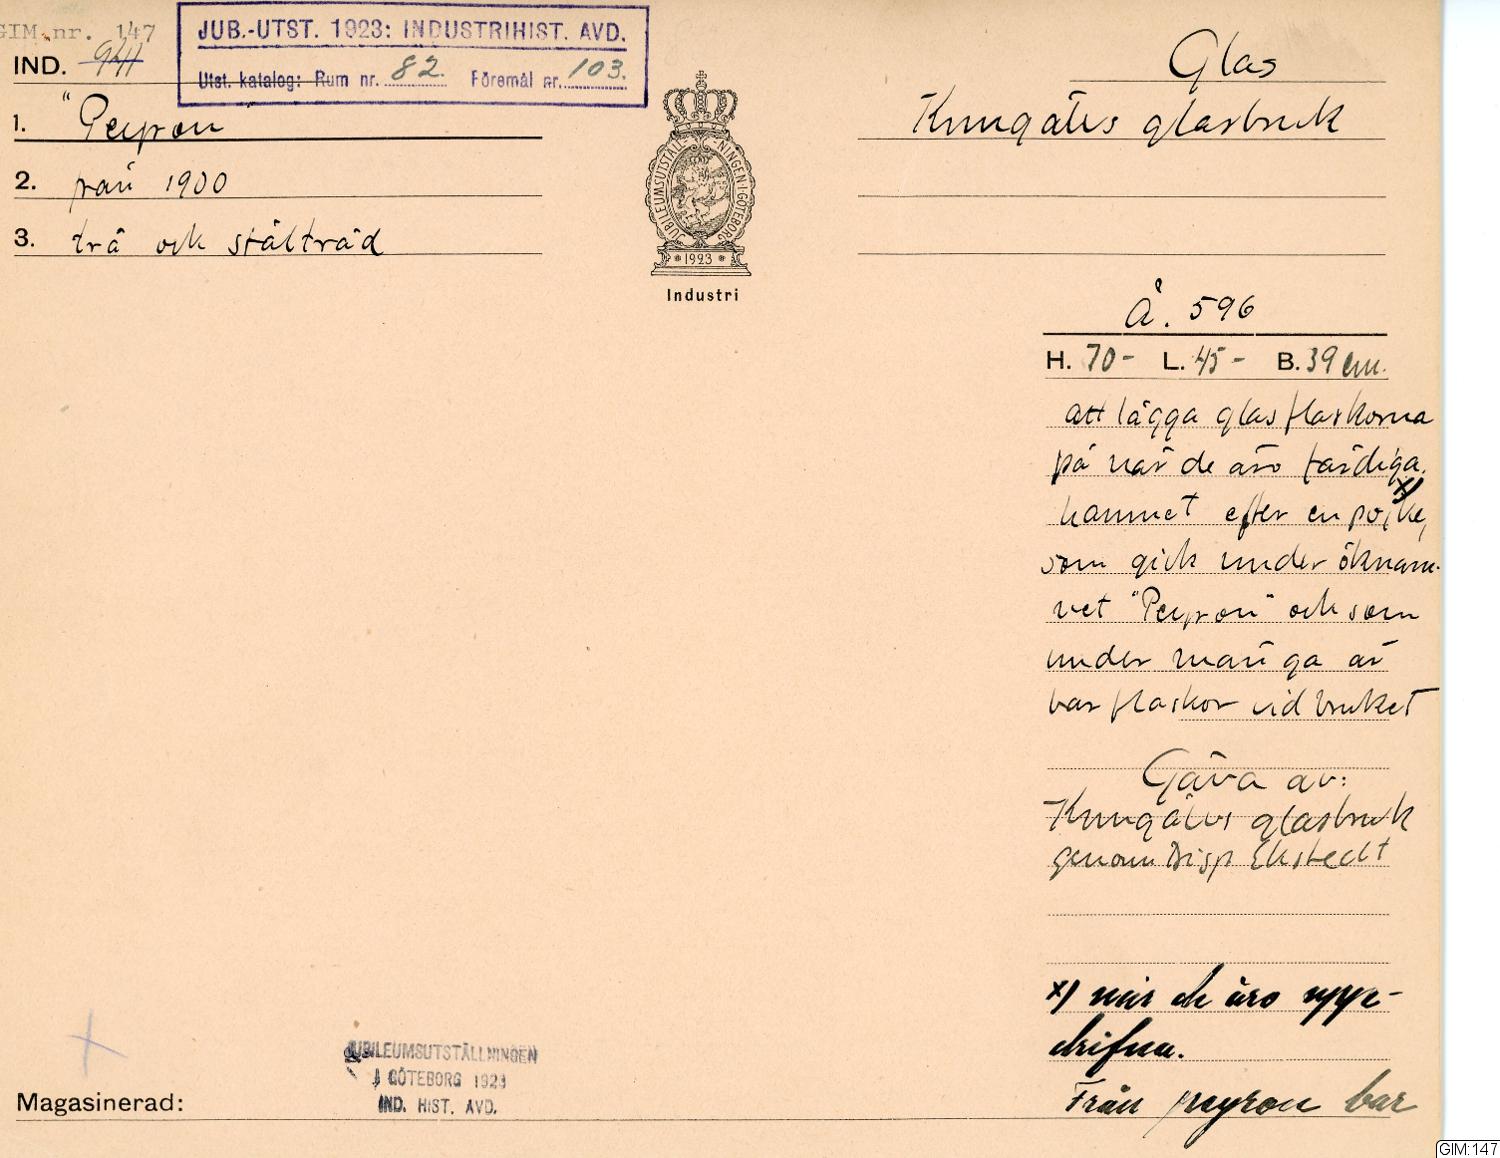 GIM.nr. 147
IND. 941
JUB.-UTST. 1923: INDUSTRIHIST. AVD.
Utst. katalog: Rum nr. 82. Föremål nr. 103.
1. "Peyron
2. från 1900
3. trä och ståltråd
JUBILEUMSUTSTÄLLNINGEN I GÖTEBORG
1923
Industri
Glas
Kungälvs glasbruk
Å. 596
H. 70- L. 45- B. 39 cm.
att lägga glasflaskorna
på när de äro färdiga. x)
namnet efter en pojke,
som gick under öknam-
net "Peyron" och som
under många år
bar flaskor vid bruket
Gåva av:
Kungälvs glasbruk
genom Disp Ekstedt
x) när de äro uppe-
drifna.
Från peyron bar
JUBILEUMSUTSTÄLLNINGEN
I GÖTEBORG 1923
IND. HIST. AVD.
Magasinerad:
GIM:147